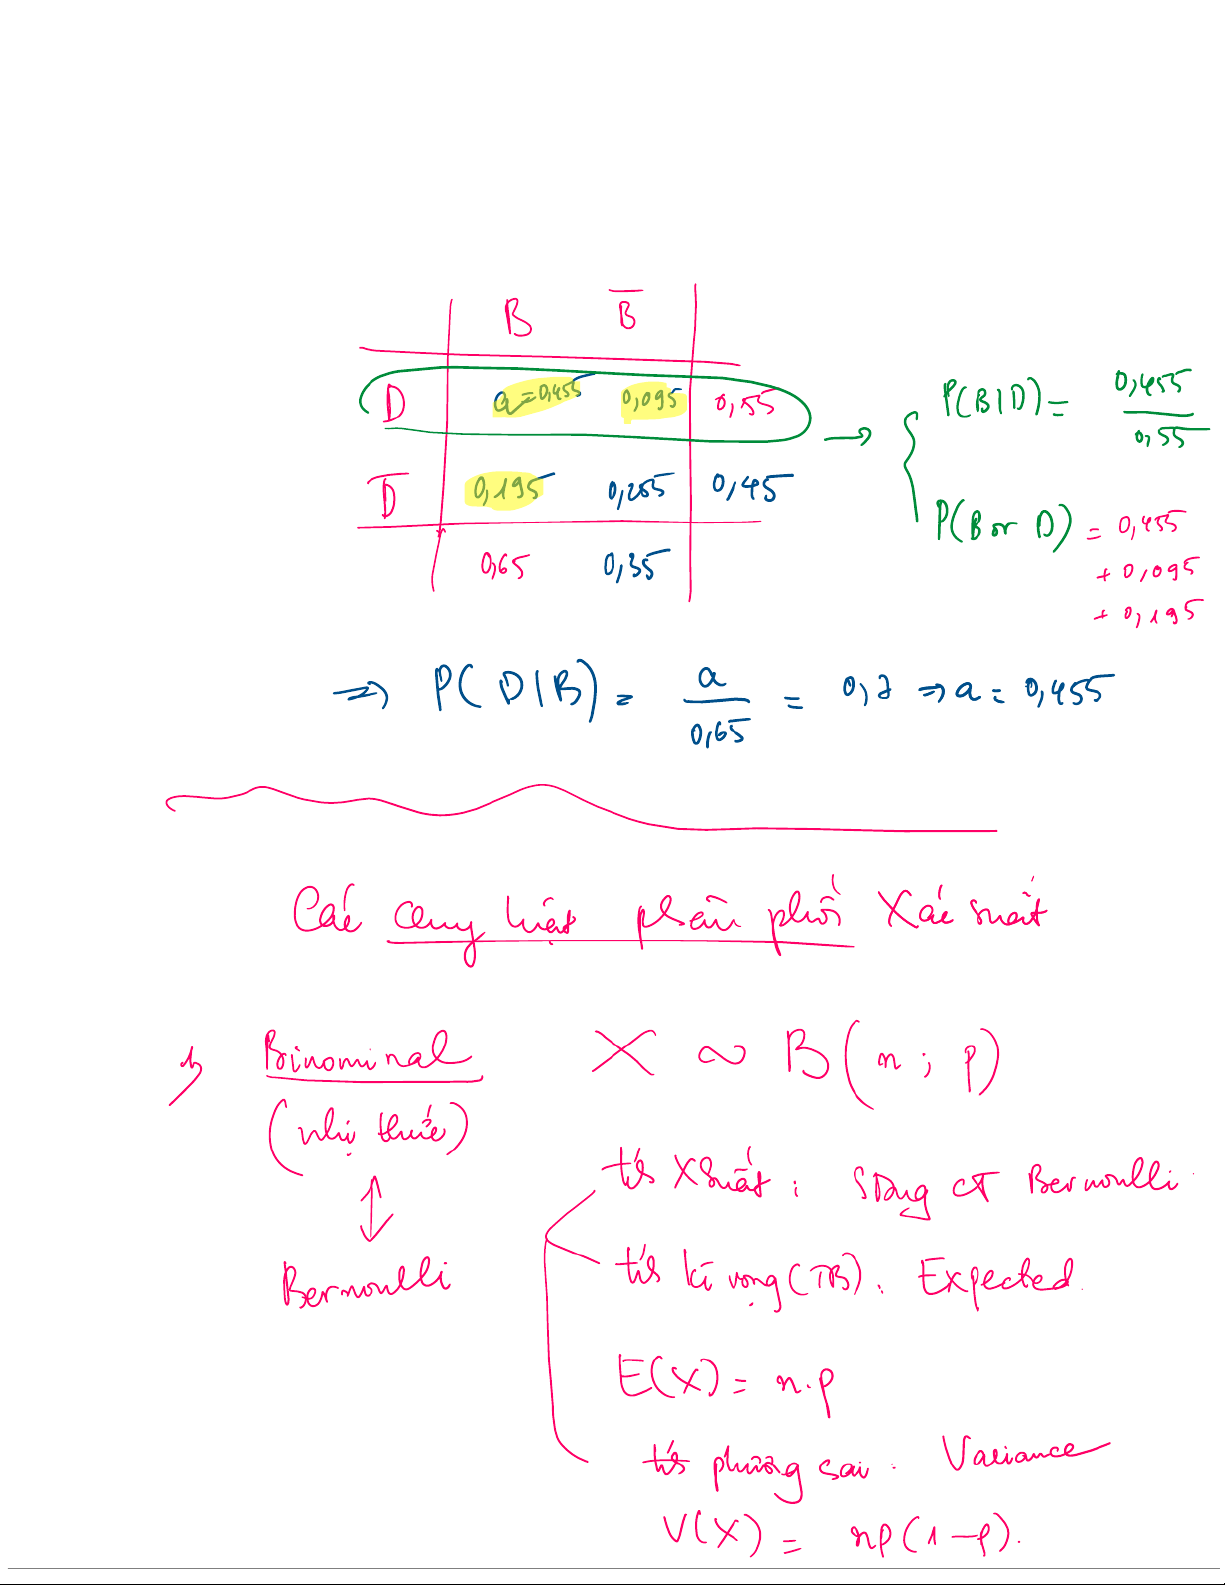 B B̅
D a = 0,455 0,095 0,55
D̅ 0,195 0,255 0,45
0,65 0,35
P(B|D) = 0,455 / 0,55
P(B or D) = 0,455
+ 0,095
+ 0,195
⇒ P(D|B) = a / 0,65 = 0,7 ⇒ a = 0,455
Các quy luật phân phối Xác suất
1) Binominal X ~ B(n; p)
(nhị thức)
↕
Bernoulli
tís Xsuất : SDụng CT Bernoulli.
tís kì vọng (TB). Expected.
E(X) = n.p
tís phương sai. Variance
V(X) = np(1-p).